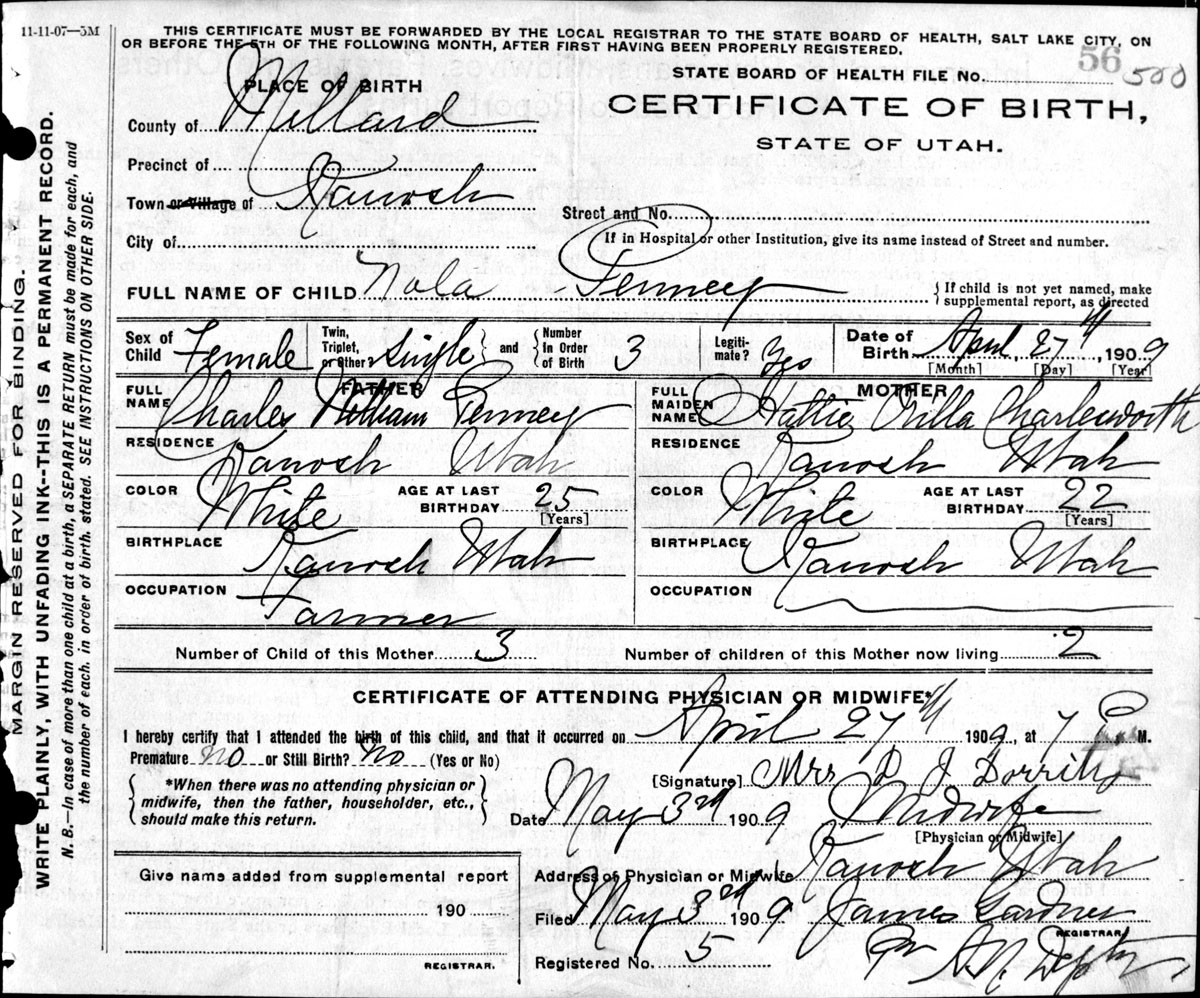 11-11-07—5M
THIS CERTIFICATE MUST BE FORWARDED BY THE LOCAL REGISTRAR TO THE STATE BOARD OF HEALTH, SALT LAKE CITY, ON
OR BEFORE THE 5TH OF THE FOLLOWING MONTH, AFTER FIRST HAVING BEEN PROPERLY REGISTERED.
56 500
PLACE OF BIRTH
STATE BOARD OF HEALTH FILE No.
County of Millard
CERTIFICATE OF BIRTH,
STATE OF UTAH.
Precinct of
Town or Village of Kanosh
Street and No.
City of
If in Hospital or other Institution, give its name instead of Street and number.
FULL NAME OF CHILD Nola Penney
If child is not yet named, make
supplemental report, as directed
Sex of Child Female
Twin, Triplet, or Other? Single and Number In Order of Birth 3
Legitimate? Yes
Date of Birth April 27th, 1909
[Month] [Day] [Year]
FATHER
FULL NAME Charles William Penney
RESIDENCE Kanosh Utah
COLOR White AGE AT LAST BIRTHDAY 25 [Years]
BIRTHPLACE Kanosh Utah
OCCUPATION Farmer
MOTHER
FULL MAIDEN NAME Hattie Orilla Charlesworth
RESIDENCE Kanosh Utah
COLOR White AGE AT LAST BIRTHDAY 22 [Years]
BIRTHPLACE Kanosh Utah
OCCUPATION
Number of Child of this Mother 3 Number of children of this Mother now living 2
CERTIFICATE OF ATTENDING PHYSICIAN OR MIDWIFE*
I hereby certify that I attended the birth of this child, and that it occurred on April 27th 1909, at 7 P M.
Premature no or Still Birth? no (Yes or No)
*When there was no attending physician or
midwife, then the father, householder, etc.,
should make this return.
[Signature] Mrs D J Dorrity
Date May 3rd 1909 Midwife
[Physician or Midwife]
Address of Physician or Midwife Kanosh Utah
Filed May 3rd 1909 James Gardner
REGISTRAR.
Registered No. 5 Per A.N. Depty
Give name added from supplemental report
190
REGISTRAR.
MARGIN RESERVED FOR BINDING.
WRITE PLAINLY, WITH UNFADING INK--THIS IS A PERMANENT RECORD.
N. B.—In case of more than one child at a birth, a SEPARATE RETURN must be made for each, and
the number of each, in order of birth, stated. SEE INSTRUCTIONS ON OTHER SIDE.